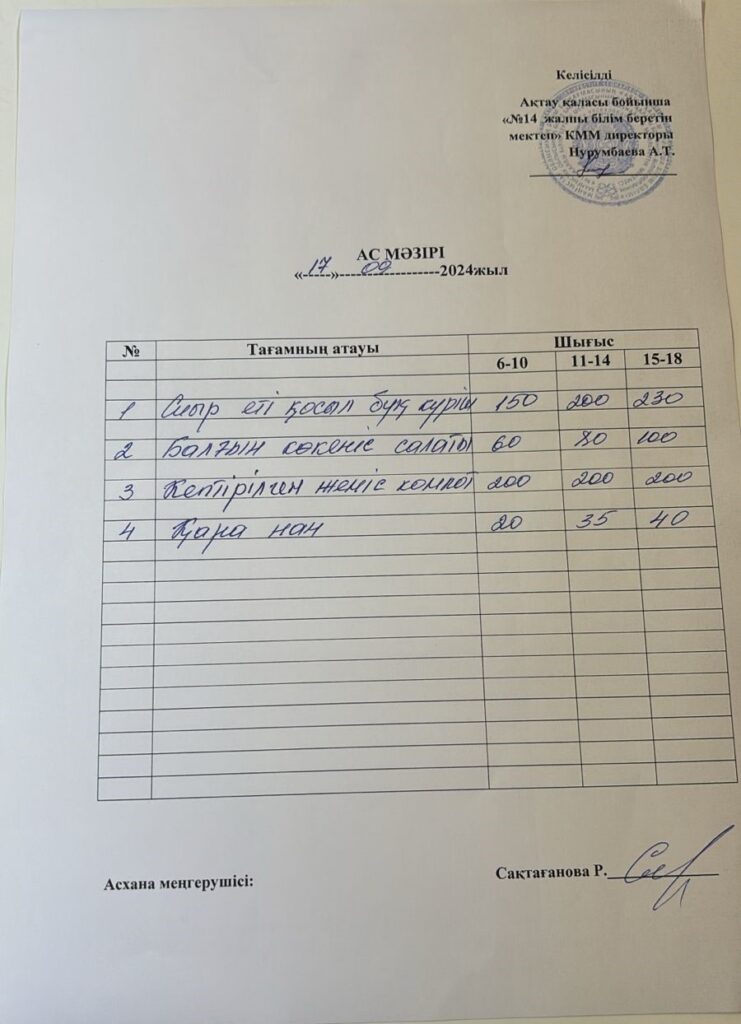 Келісілді
Ақтау қаласы бойынша
«№14 жалпы білім беретін
мектеп» КММ директоры
Нурумбаева А.Т.
АС МӘЗІРІ
«-17-»------09------2024жыл
№ Тағамның атауы Шығыс
6-10 11-14 15-18
1 Сиыр еті қосыл бұқ күріш 150 200 230
2 Балғын көкөніс салаты 60 80 100
3 Кептірілген жеміс компот 200 200 200
4 Қара нан 20 35 40
Асхана меңгерушісі: Сақтағанова Р.